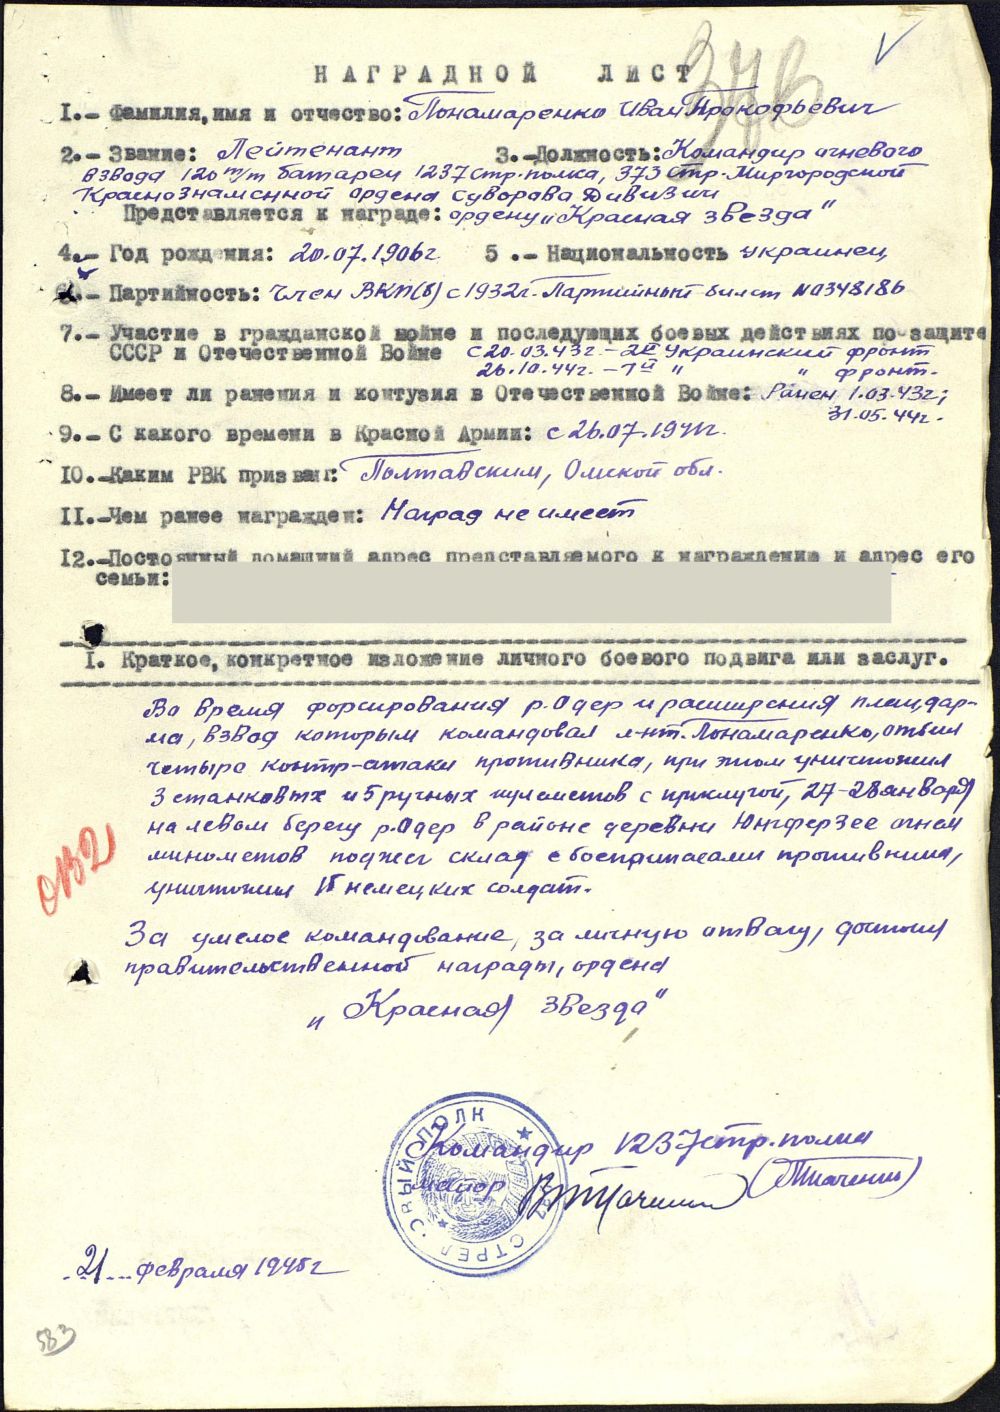 НАГРАДНОЙ ЛИСТ
376
1.- Фамилия, имя и отчество: Понамаренко Иван Прокофьевич
2.- Звание: Лейтенант 3.- Должность: Командир огневого
взвода 120 м/м батареи 1237 стр. полка, 373 стр. Миргородской
Краснознаменной ордена Суворова Дивизии
Представляется к награде: ордену „Красная звезда"
4.- Год рождения: 20.07.1906г. 5.- Национальность украинец
6.- Партийность: Член ВКП(б) с 1932г. Партийный билет №0348186
7.- Участие в гражданской войне и последующих боевых действиях по защите
СССР и Отечественной Войне с 20.03.43г. – 2й Украинский фронт
26.10.44г. – 1й " " фронт.
8.- Имеет ли ранения и контузия в Отечественной Войне: Ранен 1.03.43г;
31.05.44г.
9.- С какого времени в Красной Армии: с 26.07.1941г.
10.- Каким РВК призван: Полтавским, Омской обл.
11.- Чем ранее награжден: Наград не имеет
12.- Постоянный домашний адрес представляемого к награждению и адрес его
семьи:
1. Краткое, конкретное изложение личного боевого подвига или заслуг.
Во время форсирования р. Одер и расширения плацдар-
ма, взвод которым командовал л-нт. Понамаренко, отбил
четыре контр-атаки противника, при этом уничтожил
3 станковых и 5 ручных пулеметов с прислугой, 27-28 января
на левом берегу р. Одер в районе деревни Юнгферзее огнем
минометов поджег склад с боеприпасами противника,
уничтожил немецких солдат.
За умелое командование, за личную отвагу, достоин
правительственной награды, ордена
„Красная звезда"
Командир 1237 стр. полка
майор (Ткаченко)
СТРЕЛ ПОЛК
21 февраля 1945г
583